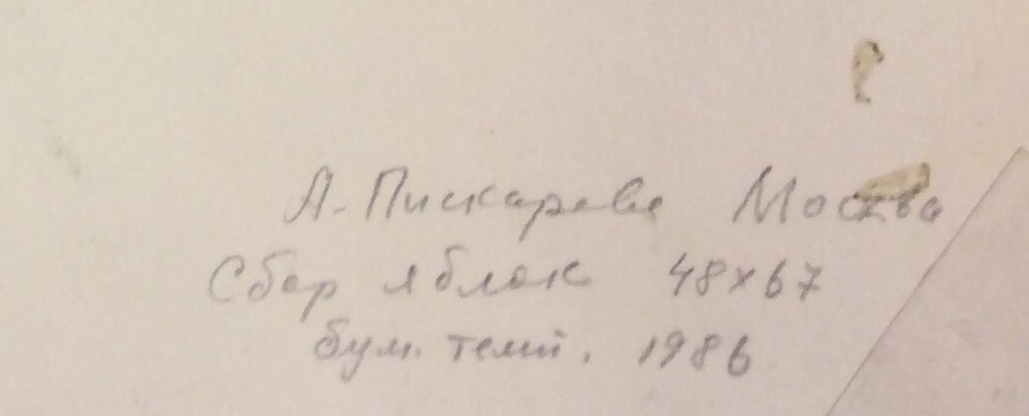 А. Пискарева Москва
Сбор яблок 48х67
бум. темп. 1986